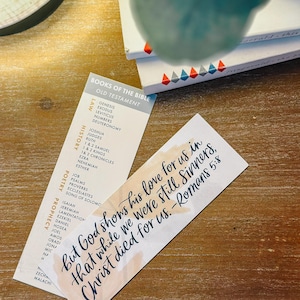 BOOKS OF THE BIBLE
OLD TESTAMENT
LAW
GENESIS
EXODUS
LEVITICUS
NUMBERS
DEUTERONOMY
HISTORY
JOSHUA
JUDGES
RUTH
1 & 2 SAMUEL
1 & 2 KINGS
1 & 2 CHRONICLES
EZRA
NEHEMIAH
ESTHER
POETRY
JOB
PSALMS
PROVERBS
ECCLESIASTES
SONG OF SOLOMON
PROPHECY
ISAIAH
JEREMIAH
LAMENTATIONS
EZEKIEL
DANIEL
HOSEA
JOEL
AMOS
MALACHI
but God shows his love for us in
that while we were still sinners,
Christ died for us. Romans 5:8